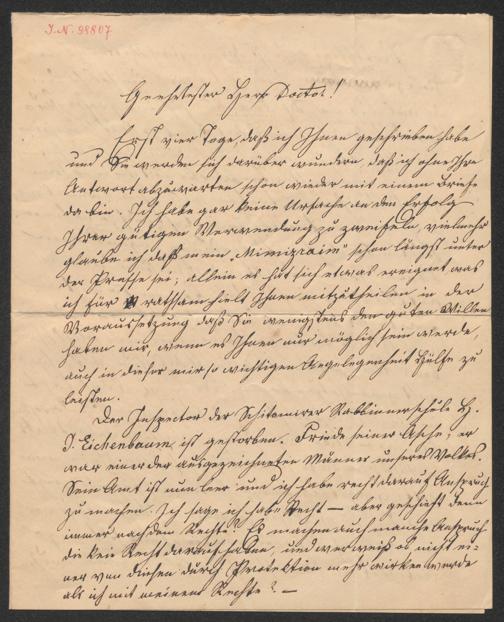 J.N. 98807
Geehrtester Herr Doctor!
Erst vier Tage, daß ich Ihnen geschrieben habe
und Sie werden sich darüber wundern daß ich ohne Ihre
Antwort abzuwarten schon wieder mit einem Briefe
da bin. Ich habe gar keine Ursache an dem Erfolg
Ihrer gütigen Verwendung zu zweifeln, vielmehr
glaube ich daß mein „Mimizraim" schon längst unter
der Presse sei; allein es hat sich etwas ereignet was
ich für rathsam hielt Ihnen mitzutheilen in der
Voraussetzung daß Sie wenigstens den guten Willen
haben mir, wenn es Ihnen nur möglich sein werde,
auch in dieser mir so wichtigen Angelegenheit Hülfe zu
leisten.
Der Inspector der Schitomirer Rabbinerschule H.
J. Eichenbaum ist gestorben. Friede seiner Asche; er
war einer der ausgezeichneten Männer unseres Volkes.
Sein Amt ist nun leer und ich habe recht darauf Anspruch
zu machen. Ich sage ich habe Recht — aber geschieht denn
immer nach dem Recht? Es machen auch manche Anspruch
die kein Recht darauf haben, und wer weiß ob nicht ei-
ner von diesen durch Protektion mehr wirken werde
als ich mit meinem Rechte? —